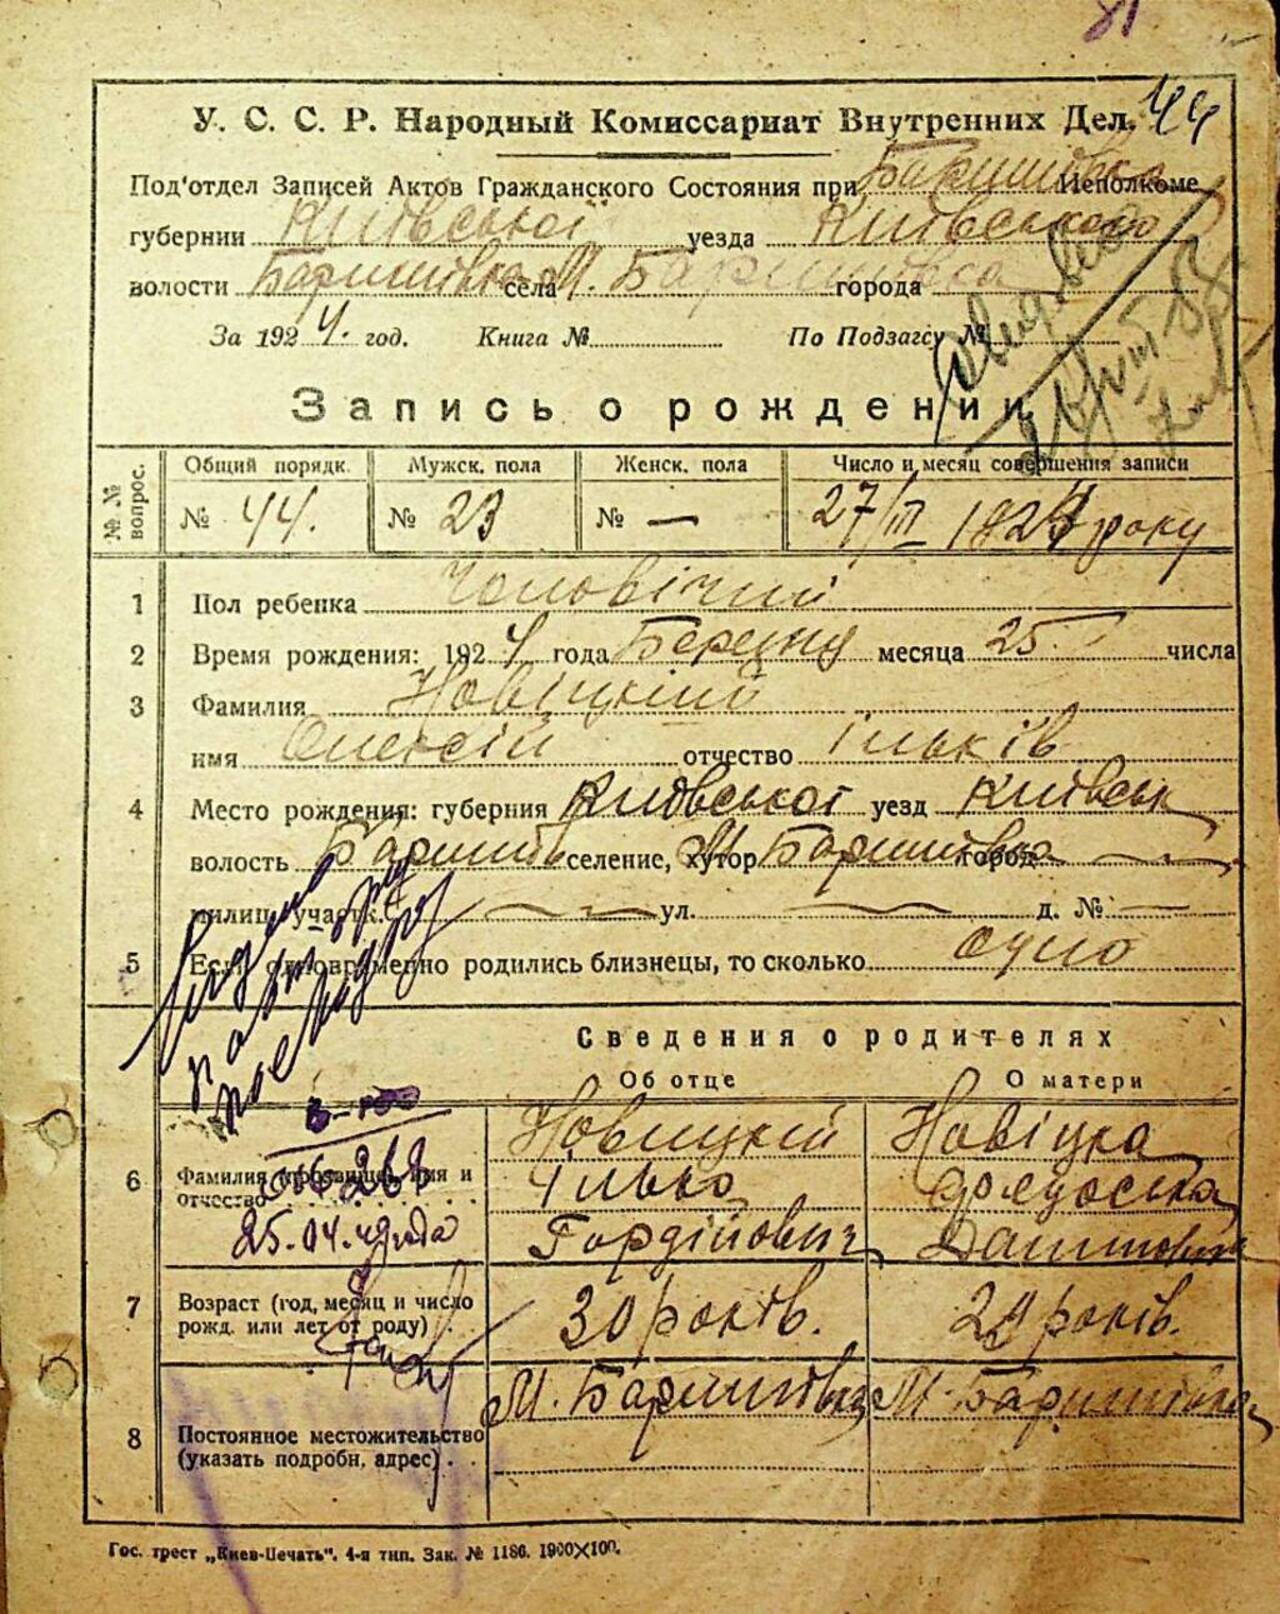 81
У. С. С. Р. Народный Комиссариат Внутренних Дел. 44
Под'отдел Записей Актов Гражданского Состояния при Баришівка Исполкоме
губернии Київської уезда Київського
волости Баришівка села М. Баришівка города
За 1924. год. Книга № По Подзагсу №
Запись о рождении
№№ вопрос. Общий порядк. Мужск. пола Женск. пола Число и месяц совершения записи
№ 44. № 23 № — 27/III 1924 року
1 Пол ребенка Чоловічий
2 Время рождения: 1924 года Березня месяца 25. числа
3 Фамилия Новіцкий
имя Олексій отчество Ільків
4 Место рождения: губерния Київської уезд Київськ
волость Баришів селение, хутор М Баришівка город —
милиц. участк. — ул. — д. № —
5 Если одновременно родились близнецы, то сколько одно
Сведения о родителях
Об отце О матери
6 Фамилия (прозвище), имя и отчество
Новицкий Новіцка
Ілько
Гордійович
25.04.49 года
7 Возраст (год, месяц и число рожд. или лет от роду) 30 років. 29 років.
8 Постоянное местожительство (указать подробн. адрес) М. Баришівка М. Баришівка
Гос. трест „Киев-Печать". 4-я тип. Зак. № 1186. 1900×100.